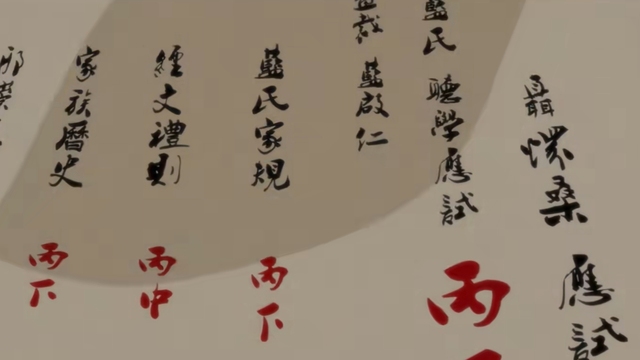 聶懷桑 應試
藍氏 聽學應試 丙
裁 藍啟仁
藍氏家規 丙下
經文禮則 丙中
家族曆史 丙下
邪祟